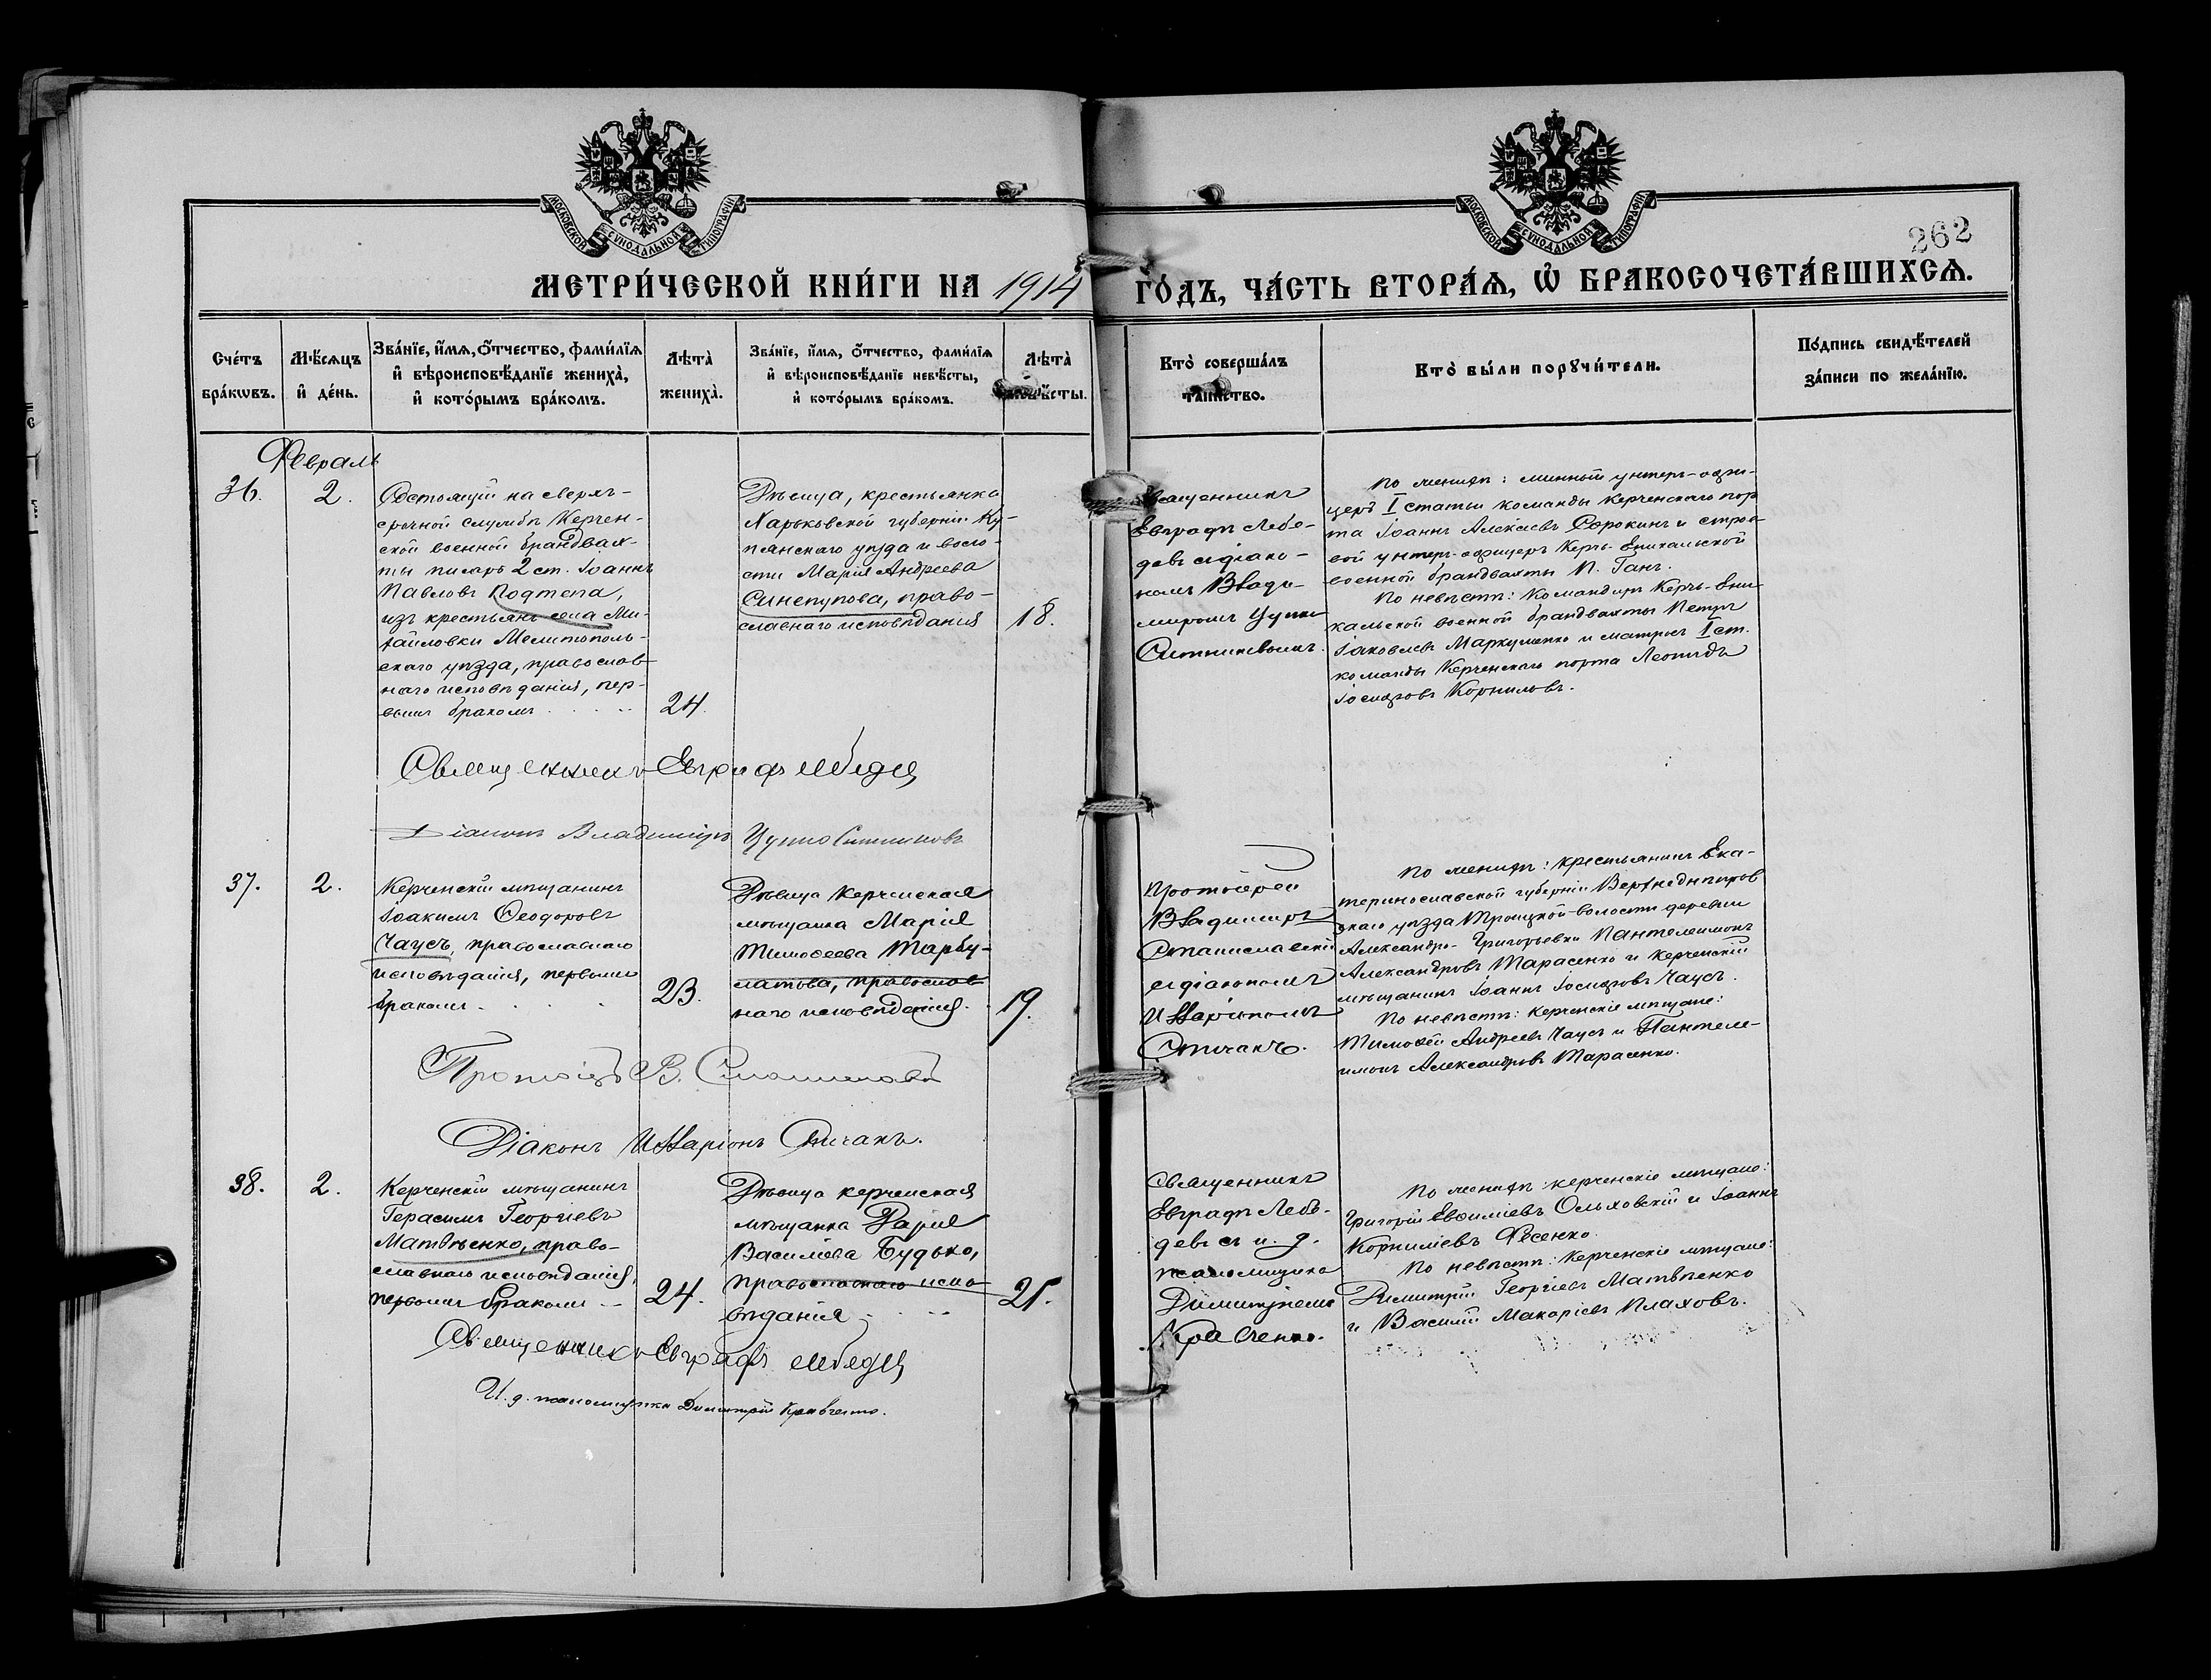 МОСКОВСКОЙ СѴНОДАЛЬНОЙ ТИПОГРАФІИ
МОСКОВСКОЙ СѴНОДАЛЬНОЙ ТИПОГРАФІИ
262
МЕТРИ́ЧЕСКОЙ КНИ́ГИ НА 1914 ГО́ДЪ, ЧА́СТЬ ВТОРА́Ѧ, Ѡ҆ БРАКОСОЧЕТА́ВШИХСѦ.
Сче́тъ
бра́кѡвъ.
Мѣ́сѧцъ
и҆ де́нь.
Зва́нїе, и҆́мѧ, ѻ҆́тчество, фами́лїѧ
и҆ вѣроисповѣ́данїе жениха̀,
и҆ кото́рымъ бра́комъ.
Лѣта̀
жениха̀.
Зва́нїе, и҆́мѧ, ѻ҆́тчество, фами́лїѧ
и҆ вѣроисповѣ́данїе невѣ́сты,
и҆ кото́рымъ бра́комъ.
Лѣта̀
невѣ́сты.
Кто̀ соверша́лъ
та́инство.
Кто̀ бы́ли порꙋчи́тели.
По́дпись свидѣ́телей
за́писи по жела́нїю.
Февраль
36.
2.
Состоящій на сверх-
срочной службѣ Керчен-
ской военной брандвах-
ты писарь 2 ст. Іоаннъ
Павловъ Подтепа,
изъ крестьянъ села Ми-
хайловки Мелитополь-
скаго уѣзда, православ-
наго исповѣданія, пер-
вымъ бракомъ
24.
Дѣвица, крестьянка
Харьковской губерніи Ку-
пянскаго уѣзда и воло-
сти Марія Андреева
Синепупова, право-
славнаго исповѣданія
18.
Священникъ
Евграфъ Лебе-
девъ съ діако-
номъ Влади-
миромъ Цупко
Ситниковымъ.
По женихѣ: минный унтеръ-офи-
церъ I статьи команды Керченскаго пор
та Іоаннъ Алексѣевъ Сорокинъ и строе-
вой унтеръ-офицеръ Керчь-Еникальской
военной брандвахты П. Ганъ.
По невѣстѣ: Командиръ Керчь-Ени-
кальской военной брандвахты Петръ
Іаковлевъ Маркушенко и матросъ I ст.
команды Керченскаго порта Леонидъ
Іосифовъ Корниловъ.
Священникъ Евграфъ Лебедевъ
Діаконъ Владимиръ Цупко Ситниковъ
37.
2.
Керченскій мѣщанинъ
Іоакимъ Ѳеодоровъ
Чаусъ, православнаго
исповѣданія, первымъ
бракомъ
23.
Дѣвица керченская
мѣщанка Марія
Тимоѳеева Тарбу-
латова, православ
наго исповѣданія.
19.
Протоіерей
Владимиръ
Станиславскій
съ діакономъ
Иларіономъ
Спичакъ.
По женихѣ: крестьянинъ Ека-
теринославской губерніи Верхнеднѣпров
скаго уѣзда Троицкой волости деревни
Александро-Григорьевки Пантелеимонъ
Александровъ Тарасенко и керченскій
мѣщанинъ Іоаннъ Іосифовъ Чаусъ.
По невѣстѣ: керченскіе мѣщане:
Тимоѳей Андреевъ Чаусъ и Пантеле-
имонъ Александровъ Тарасенко.
Протоіер. В. Станиславскій
Діаконъ Иларіонъ Спичакъ.
38.
2.
Керченскій мѣщанинъ
Герасимъ Георгіевъ
Матвѣенко, право-
славнаго исповѣданія,
первымъ бракомъ
24.
Дѣвица керченская
мѣщанка Дарія
Василіева Будько,
православнаго испо-
вѣданія
21.
Священникъ
Евграфъ Лебе-
девъ съ и. д.
псаломщика
Димитріемъ
Кравченко.
По женихѣ: керченскіе мѣщане:
Григорій Евѳиміевъ Ольховскій и Іоаннъ
Корниліевъ Фесенко.
По невѣстѣ: Керченскіе мѣщане:
Димитрій Георгіевъ Матвѣенко
и Василій Макаріевъ Плаховъ.
Священникъ Евграфъ Лебедевъ
И. д. псаломщика Димитрій Кравченко.